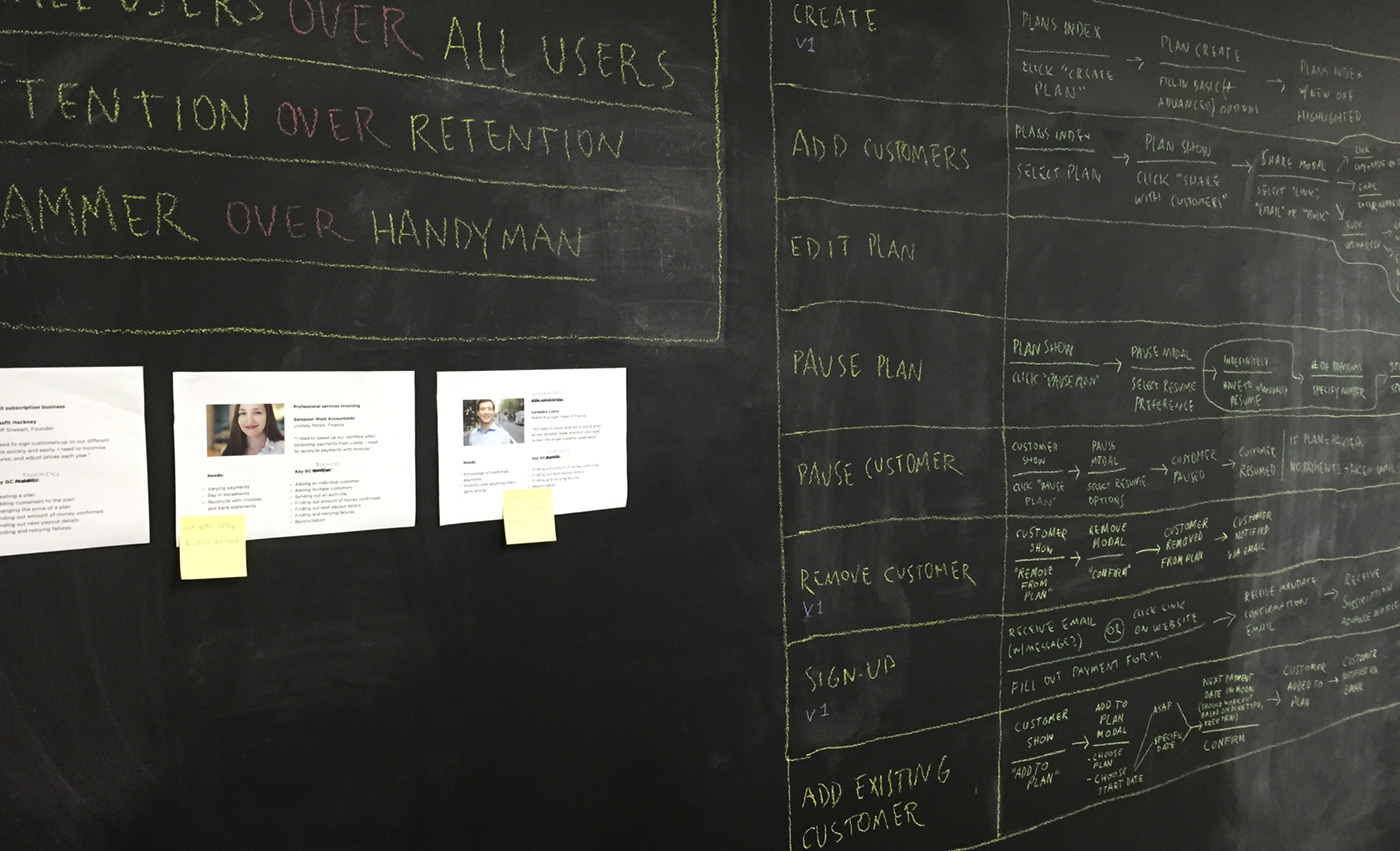 ALL USERS OVER ALL USERS
TENTION OVER RETENTION
AMMER OVER HANDYMAN
subscription business
Hackney
Founder
eed to sign customers up to our different
quickly and easily. I need to minimise
and adjust prices each year."
Key GC
eating a plan
dding customers to the plan
hanging the price of a plan
nding out amount of money confirmed
nding out next payout details
nding and retrying failures
Professional services invoicing
Sampson West Accountants
Lindsay Peters, Finance
"I need to speed up our cashflow when
collecting payments from clients. I need
to reconcile payments with invoices."
Needs:
Varying payments
Pay in instalments
Reconcile with invoices
and bank statements
Key GC
Adding an individual customer
Adding multiple customers
Sending out an auth link
Finding out amount of money confirmed
Finding out next payout details
Finding and retrying failures
Reconciliation
Needs:
Knowledge of confirmed
payments
Visibility over anything that's
gone wrong
Key GC
Finding out amount of money confirmed
Finding out next payout details
Finding and retrying failures
Reconciliation
CREATE
V1
PLANS INDEX
CLICK "CREATE
PLAN"
→
PLAN CREATE
FILL IN BASIC (+
ADVANCED) OPTIONS
→
PLANS INDEX
W/ NEW ONE
HIGHLIGHTED
ADD CUSTOMERS
PLANS INDEX
SELECT PLAN
→
PLAN SHOW
CLICK "SHARE
WITH CUSTOMERS"
→
SHARE MODAL
SELECT "LINK",
"EMAIL" OR "BULK"
LINK
EMAIL
BULK
EDIT PLAN
PAUSE PLAN
PLAN SHOW
CLICK "PAUSE PLAN"
→
PAUSE MODAL
SELECT RESUME
PREFERENCE
→
INDEFINITELY
HAVE TO MANUALLY
RESUME
SPECIFY NUMBER
PAUSE CUSTOMER
CUSTOMER
SHOW
CLICK "PAUSE
PLAN"
→
PAUSE
MODAL
SELECT RESUME
OPTIONS
→
CUSTOMER
PAUSED
→
CUSTOMER
RESUMED
IF PLAN = PAUSED,
NO PAYMENTS TAKEN
REMOVE CUSTOMER
V1
CUSTOMER
SHOW
"REMOVE
FROM
PLAN"
→
REMOVE
MODAL
"CONFIRM"
→
CUSTOMER
REMOVED
FROM PLAN
→
CUSTOMER
NOTIFIED
VIA EMAIL
SIGN-UP
V1
RECEIVE EMAIL
(W/MESSAGE?)
OR
CLICK LINK
ON WEBSITE
→
RECEIVE MANDATE
CONFIRMATION
EMAIL
→
RECEIVE
SUBSCRIPTION
ADVANCE NOTICE
FILL OUT PAYMENT FORM.
ADD EXISTING
CUSTOMER
CUSTOMER
SHOW
"ADD TO
PLAN"
→
ADD TO
PLAN
MODAL
- CHOOSE
PLAN
- CHOOSE
START DATE
ASAP
SPECIFIC
DATE
NEXT PAYMENT
DATE ON MODAL
(SHOULD WORK OUT
BASED ON PLAN TYPE,
FREE TRIAL)
CONFIRM
→
CUSTOMER
ADDED TO
PLAN
→
CUSTOMER
NOTIFIED VIA
EMAIL